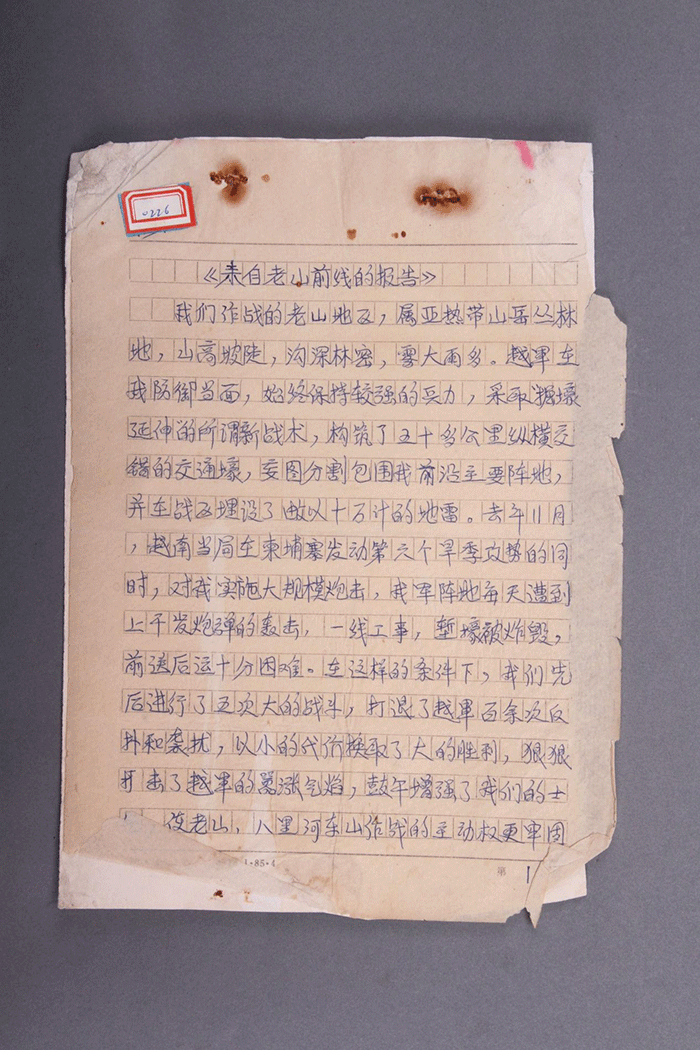 0226
《来自老山前线的报告》
我们作战的老山地区，属亚热带山岳丛林
地，山高坡陡，沟深林密，雾大雨多。越军在
我防御当面，始终保持较强的兵力，采取掘壕
延伸的所谓新战术，构筑了五十多公里纵横交
错的交通壕，妄图分割包围我前沿主要阵地，
并在战区埋设了数以十万计的地雷。去年11月
，越南当局在柬埔寨发动第六个旱季攻势的同
时，对我实施大规模炮击，我军阵地每天遭到
上千发炮弹的轰击，一线工事，堑壕被炸毁，
前送后运十分困难。在这样的条件下，我们先
后进行了五次大的战斗，打退了越军百余次反
扑和袭扰，以小的代价换取了大的胜利，狠狠
打击了越军的嚣涨气焰，鼓午增强了我们的士
使老山、八里河东山作战的主动权更牢固
1·85·4
第 1